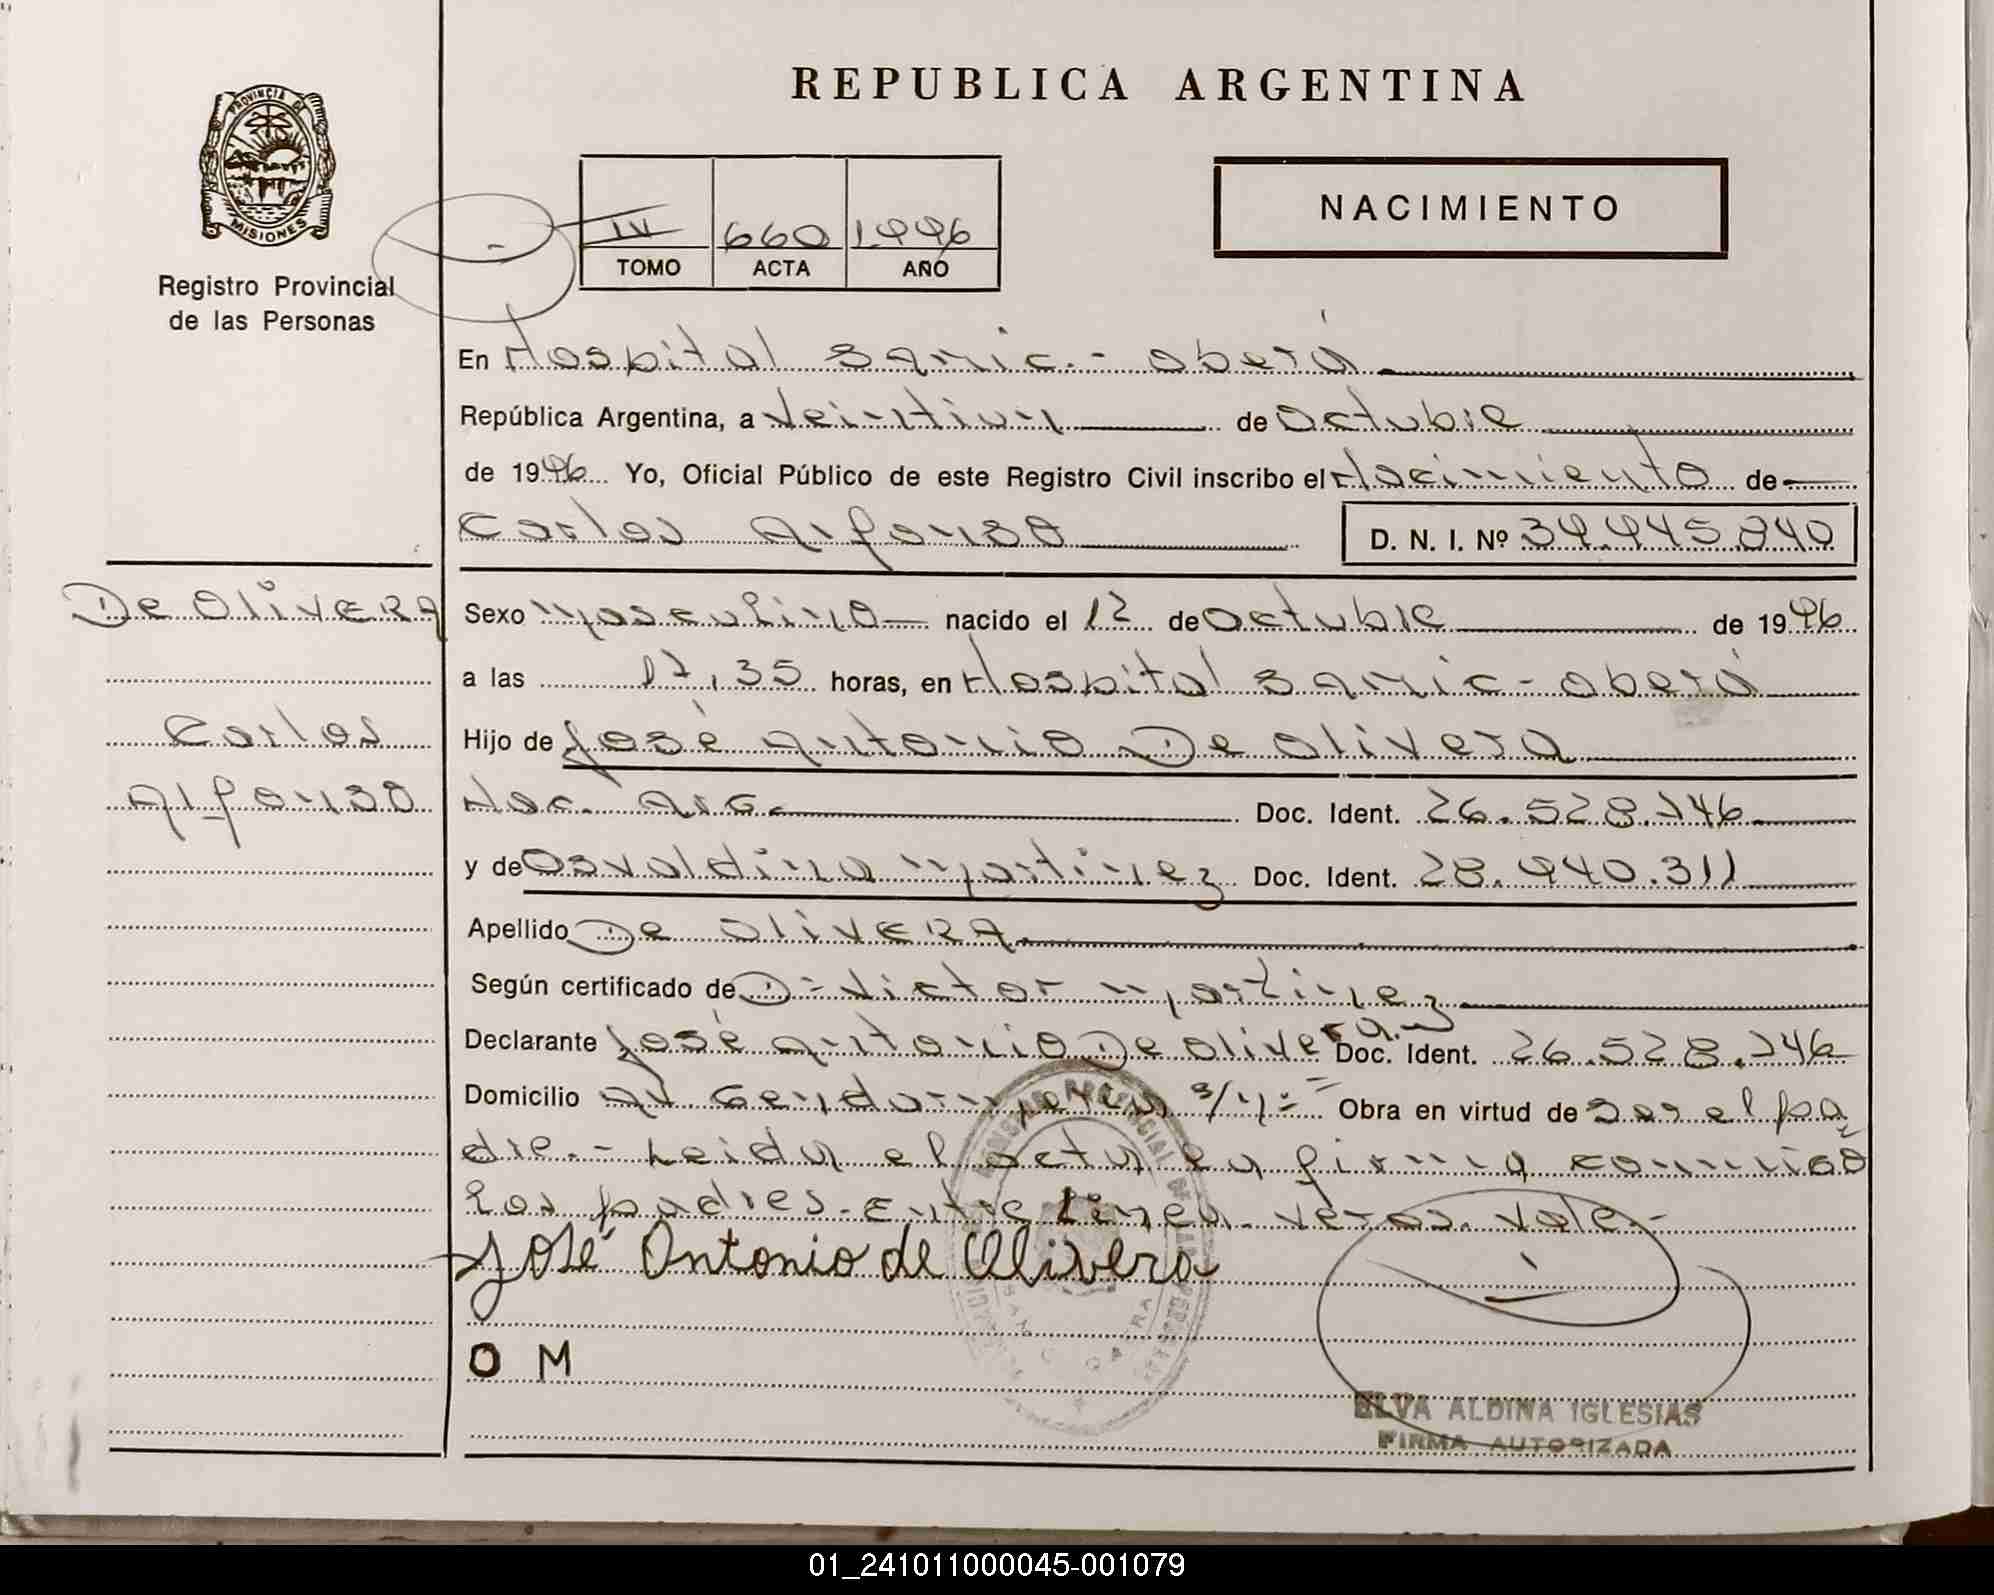 REPUBLICA ARGENTINA
PROVINCIA DE
MISIONES
Registro Provincial
de las Personas
IV 660 1996
TOMO ACTA AÑO
NACIMIENTO
En Hospital Samic.- Oberá
República Argentina, a Veintiun de Octubre
de 1996 Yo, Oficial Público de este Registro Civil inscribo el Nacimiento de
Carlos Alfonso D. N. I. Nº 39.945.840
De OLIVERA
Carlos
Alfonso
Sexo Masculino nacido el 12 de Octubre de 1996
a las 17,35 horas, en Hospital Samic - Oberá
Hijo de José Antonio De Olivera
Nac. Arg. Doc. Ident. 26.528.746
y de Osvaldina Martinez Doc. Ident. 28.940.311
Apellido De OLIVERA
Según certificado de D: Victor Martinez
Declarante José Antonio De Olivera Doc. Ident. 26.528.746
Domicilio Av Gendarmeria s/n: Obra en virtud de ser el pa
dre.- Leida el acta la firma
los padres. Entre linea. Vale.-
José Antonio de Olivera
O M
ELVA ALDINA IGLESIAS
FIRMA AUTORIZADA
01_241011000045-001079